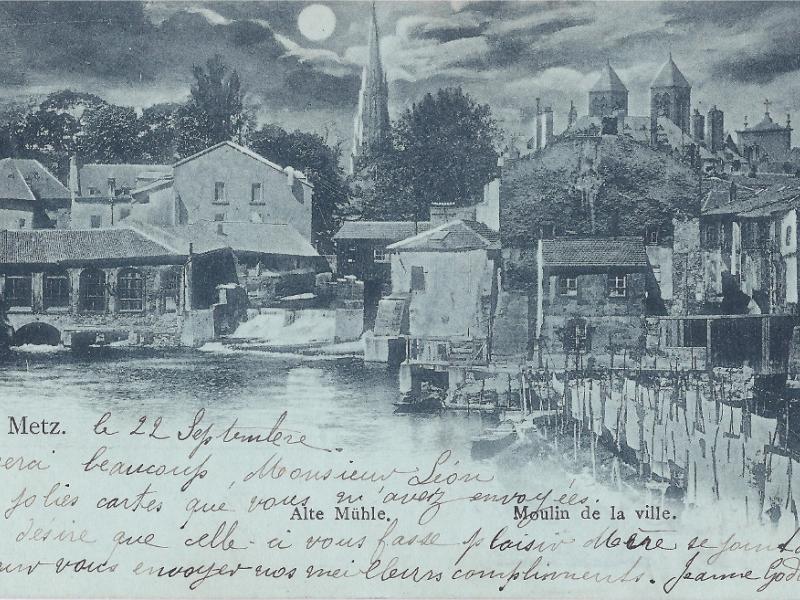 Metz. le 22 Septembre.
erci beaucoup, Monsieur Léon
jolies cartes que vous m'avez envoyées.
Alte Mühle. Moulin de la ville.
désire que celle-ci vous fasse plaisir Mère se joint
our vous envoyer nos meilleurs compliments. Jeanne God